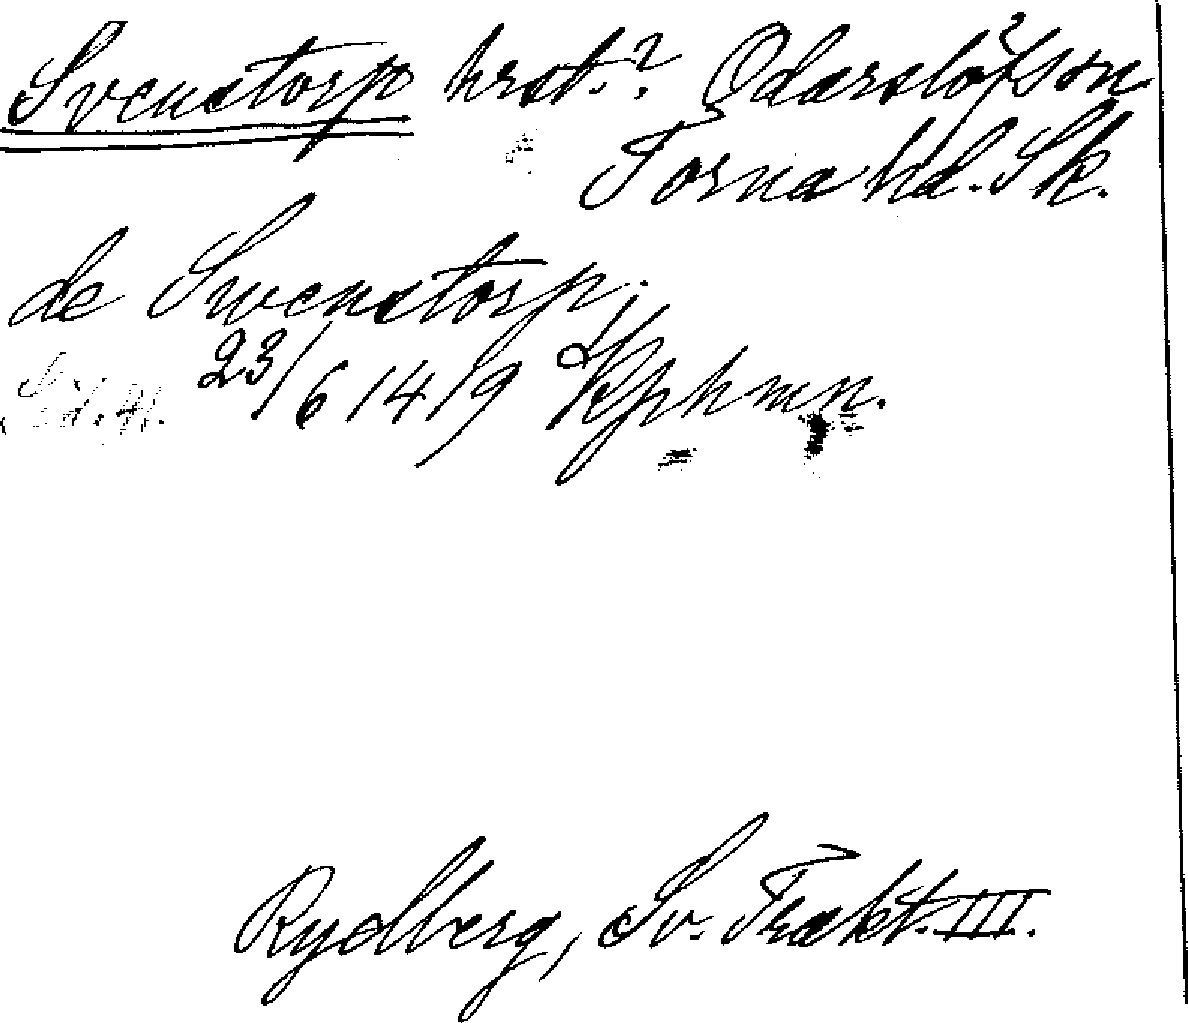 Svenstorp hrst.? Odarslöfs sn.
Torna hd. Sk.
de Swenstorp;
23/6 1419 Kphmn.
Rydberg, Sv. Trakt. III.